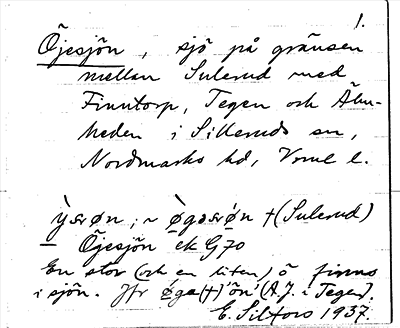 1.
Öjesjön, sjö på gränsen
mellan Sulerud med
Finntorp, Tegen och Älu-
heden i Silleruds sn,
Nordmarks hd, Vrml l.
ỳsrøn; ~ ø̀gəsrøn † (Sulerud)
Öjesjön ek G70
En stor (och en liten) ö finns
i sjön. Jfr øga(†) 'ön' (A.J. i Tegen).
E. Silfors 1937.